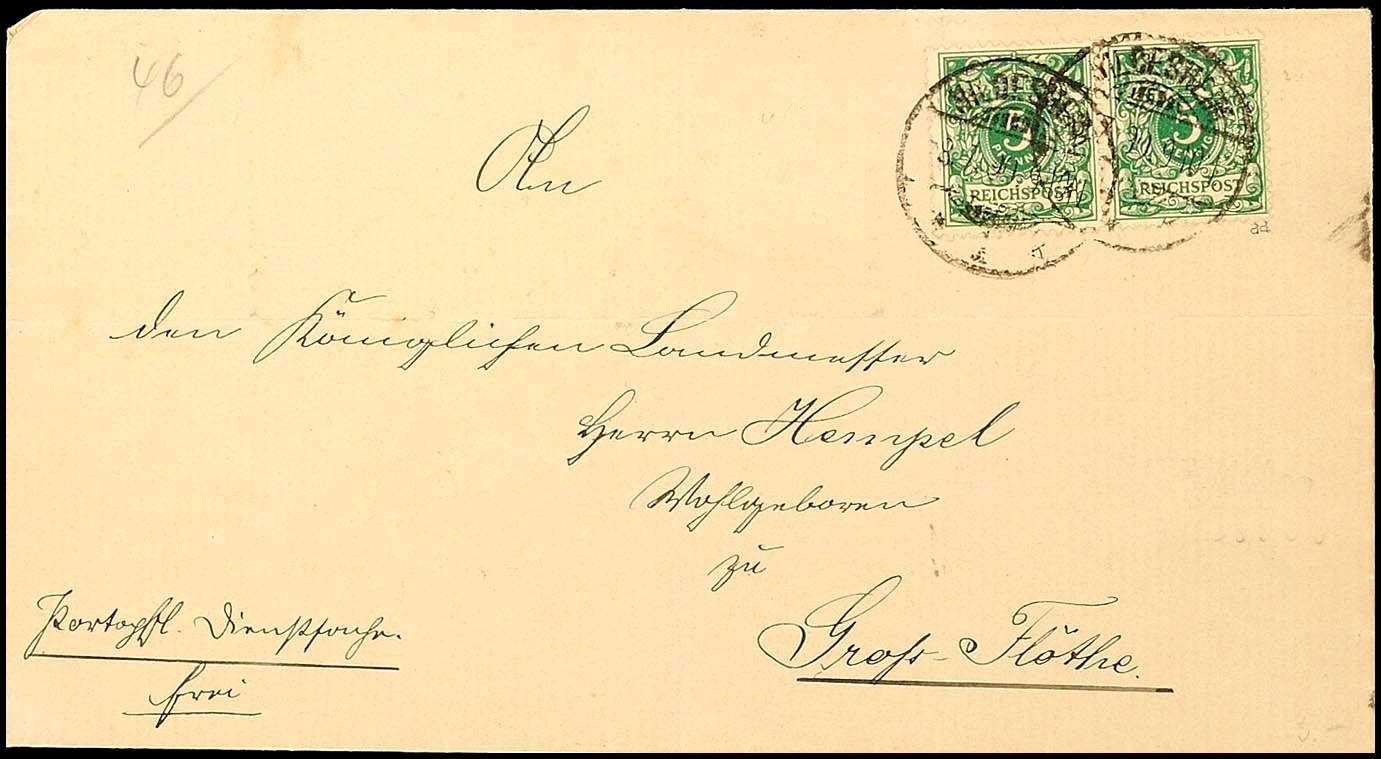 46
An
den Königlichen Landmesser
Herrn Hempel
Wohlgeboren
zu
Gross-Flöthe.
Portopfl. Dienstsache.
frei
5
PFENNIG
REICHSPOST
5
PFENNIG
REICHSPOST
HILDESHEIM
HILDESHEIM
ad
3.-